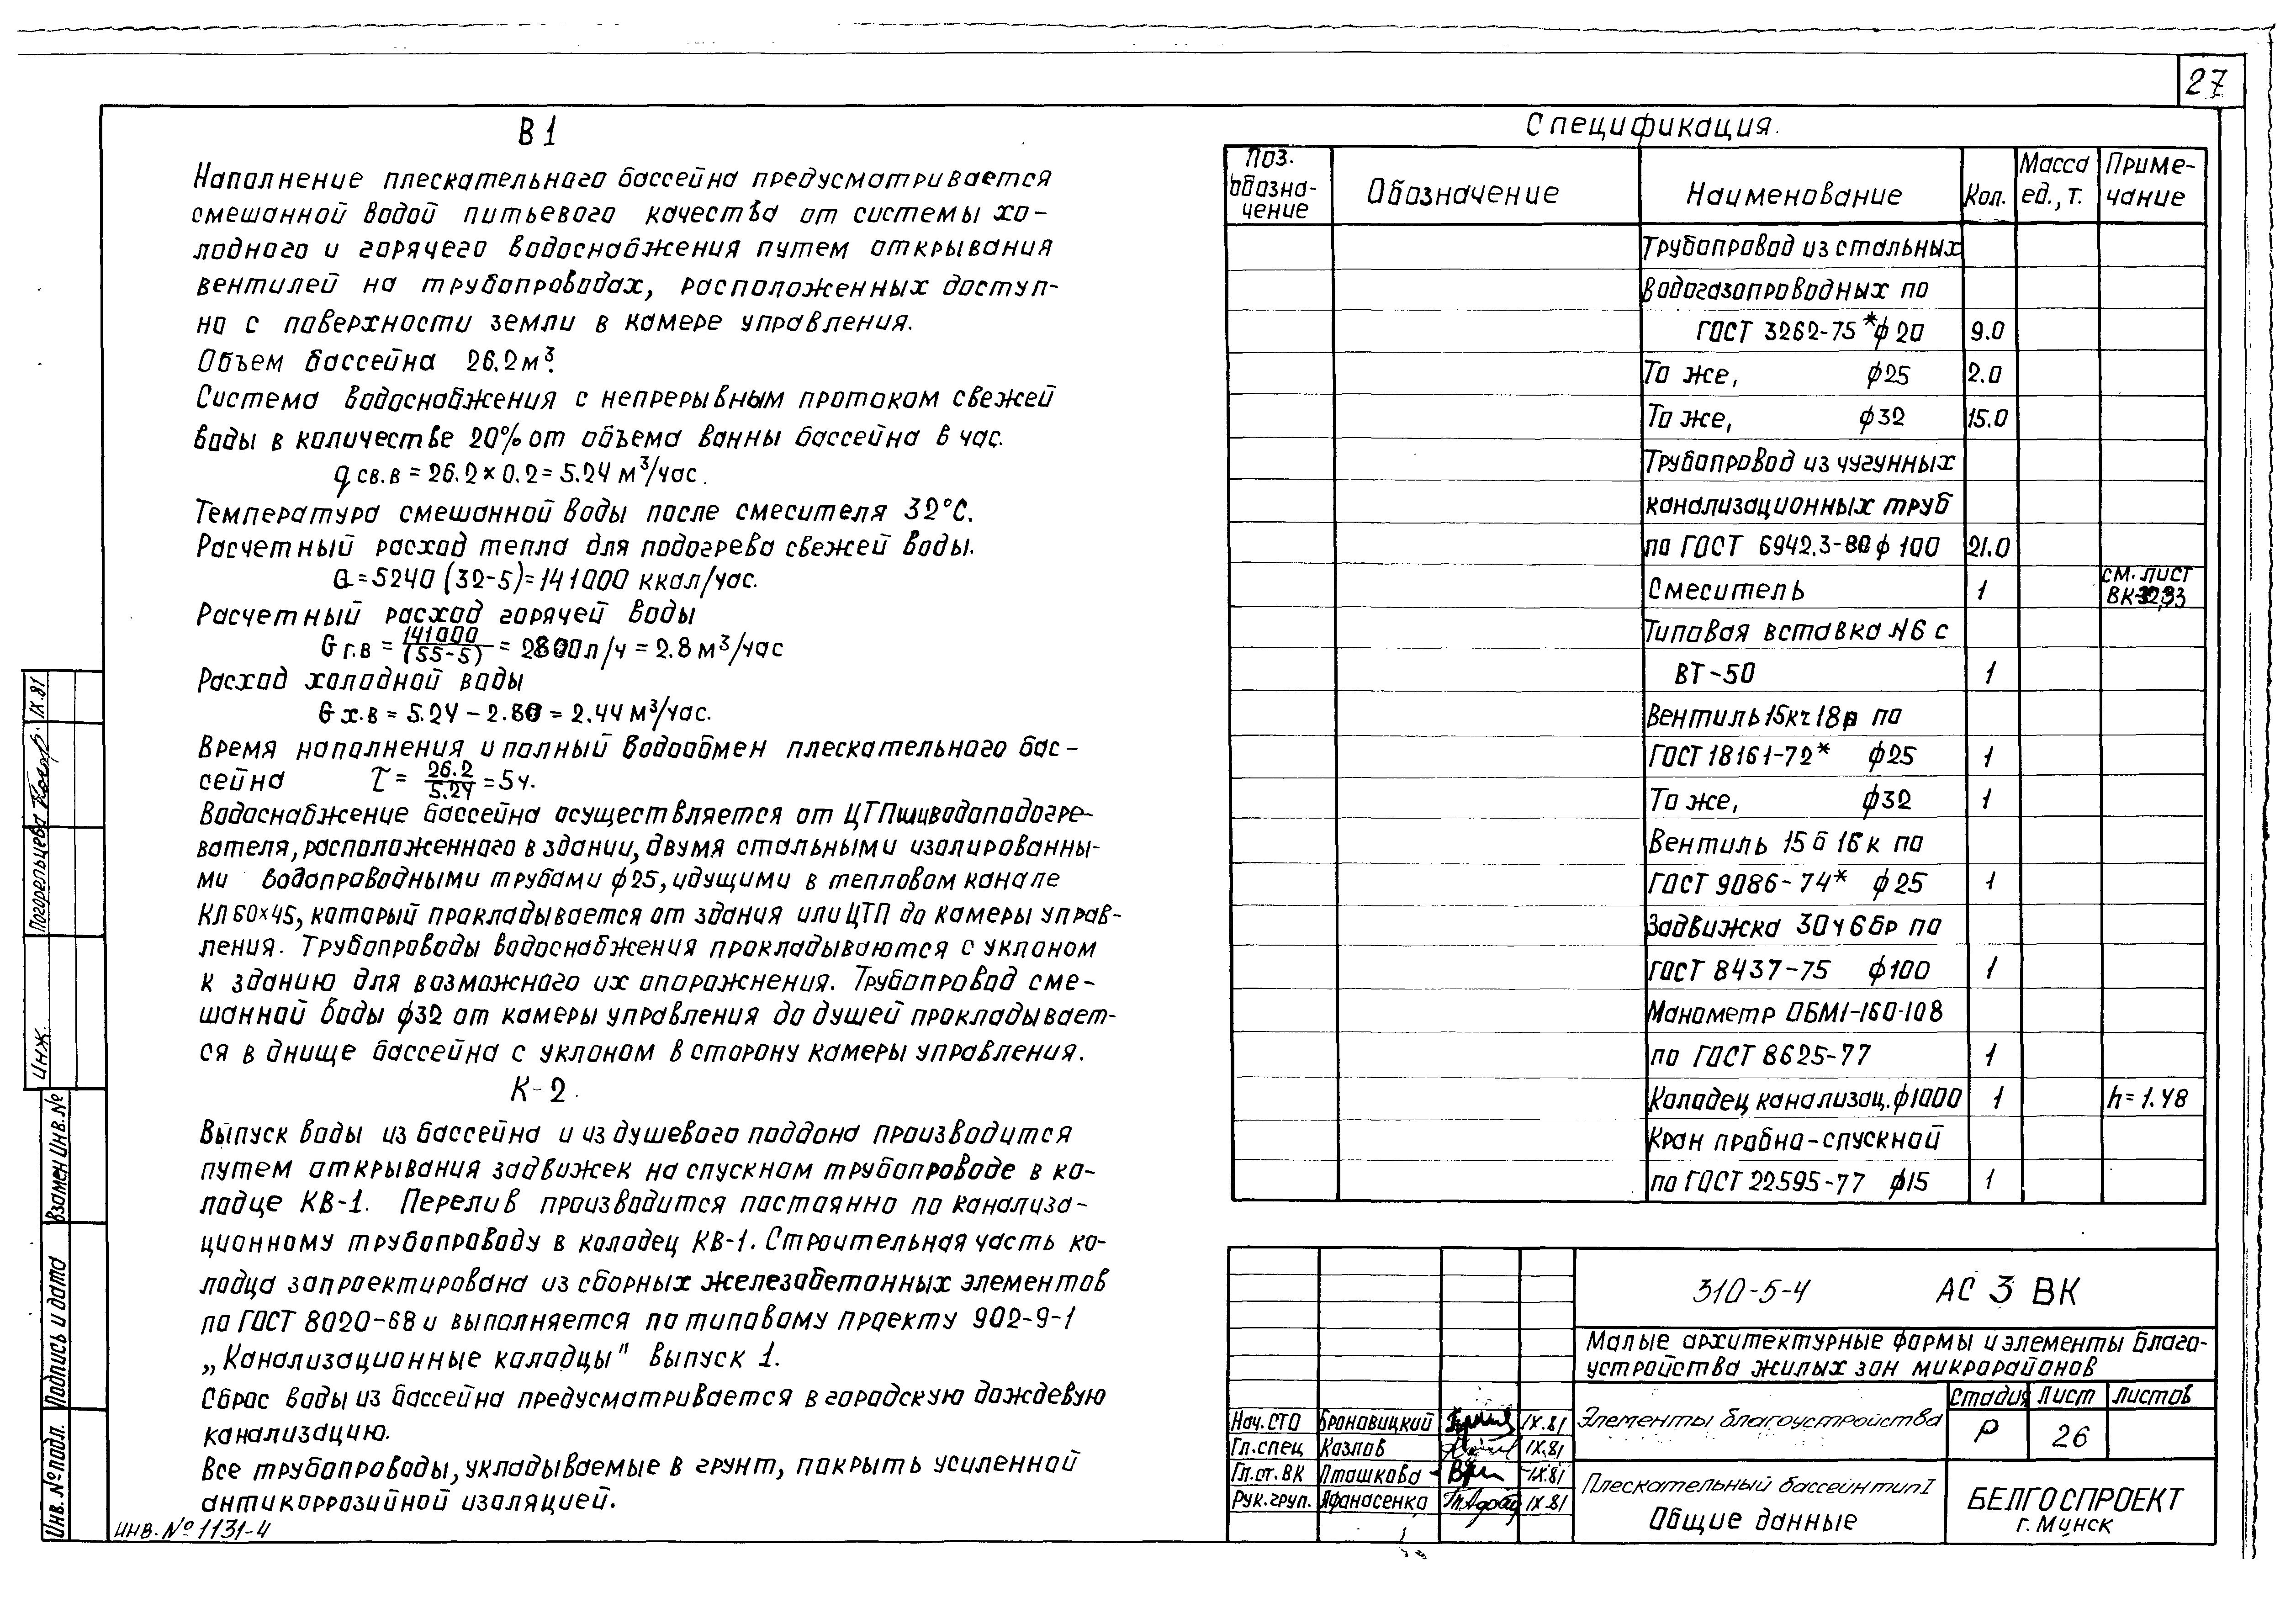 27
В1
Наполнение плескательного бассейна предусматривается
смешанной водой питьевого качества от системы хо-
лодного и горячего водоснабжения путем открывания
вентилей на трубопроводах, расположенных доступ-
но с поверхности земли в камере управления.
Объем бассейна 26.2 м³.
Система водоснабжения с непрерывным протоком свежей
воды в количестве 20% от объема ванны бассейна в час.
q св.в = 26.2 × 0.2 = 5.24 м³/час.
Температура смешанной воды после смесителя 32°С.
Расчетный расход тепла для подогрева свежей воды.
Q = 5240 (32-5) = 141000 ккал/час.
Расчетный расход горячей воды
G г.в = 141000/(55-5) = 2800 л/ч = 2.8 м³/час
Расход холодной воды
G х.в = 5.24 - 2.80 = 2.44 м³/час.
Время наполнения и полный водообмен плескательного бас-
сейна τ = 26.2/5.24 = 5 ч.
Водоснабжение бассейна осуществляется от ЦТП или водоподогре-
вателя, расположенного в здании, двумя стальными изолированны-
ми водопроводными трубами ф25, идущими в тепловом канале
КЛ 60×45, который прокладывается от здания или ЦТП до камеры управ-
ления. Трубопроводы водоснабжения прокладываются с уклоном
к зданию для возможного их опорожнения. Трубопровод сме-
шанной воды ф32 от камеры управления до душей прокладывает-
ся в днище бассейна с уклоном в сторону камеры управления.
К-2
Выпуск воды из бассейна и из душевого поддона производится
путем открывания задвижек на спускном трубопроводе в ко-
лодце КВ-1. Перелив производится постоянно по канализа-
ционному трубопроводу в колодец КВ-1. Строительная часть ко-
лодца запроектирована из сборных железобетонных элементов
по ГОСТ 8020-68 и выполняется по типовому проекту 902-9-1
„Канализационные колодцы" выпуск 1.
Сброс воды из бассейна предусматривается в городскую дождевую
канализацию.
Все трубопроводы, укладываемые в грунт, покрыть усиленной
антикоррозийной изоляцией.
инв. № 1131-4
Инж. Погорельцева IX.81
Взамен Инв. №
Подпись и дата
Инв. № подл.
Спецификация.
Поз. обозна- чение Обозначение Наименование Кол. Масса ед., т. Приме- чание
Трубопровод из стальных
водогазопроводных по
ГОСТ 3262-75* ф20 9.0
То же, ф25 2.0
То же, ф32 15.0
Трубопровод из чугунных
канализационных труб
по ГОСТ 6942.3-80 ф 100 21.0
Смеситель 1 см. лист ВК-32,33
Типовая вставка №6 с
ВТ-50 1
Вентиль 15кч 18р по
ГОСТ 18161-72* ф25 1
То же, ф32 1
Вентиль 15 б 16 к по
ГОСТ 9086-74* ф25 1
Задвижка 30ч 6 бр по
ГОСТ 8437-75 ф100 1
Манометр ОБМ1-160-108
по ГОСТ 8625-77 1
Колодец канализац. ф1000 1 h = 1.48
Кран пробно-спускной
по ГОСТ 22595-77 ф15 1
310-5-4 АС 3 ВК
Малые архитектурные формы и элементы благо-
устройства жилых зон микрорайонов
Элементы благоустройства
Стадия Лист Листов
Р 26
Нач. СТО Броновицкий IX.81
Гл. спец Козлов IX.81
Гл. ст. ВК Пташкова IX.81
Рук. груп. Афанасенко IX.81
Плескательный бассейн тип I
Общие данные
БЕЛГОСПРОЕКТ
г. Минск